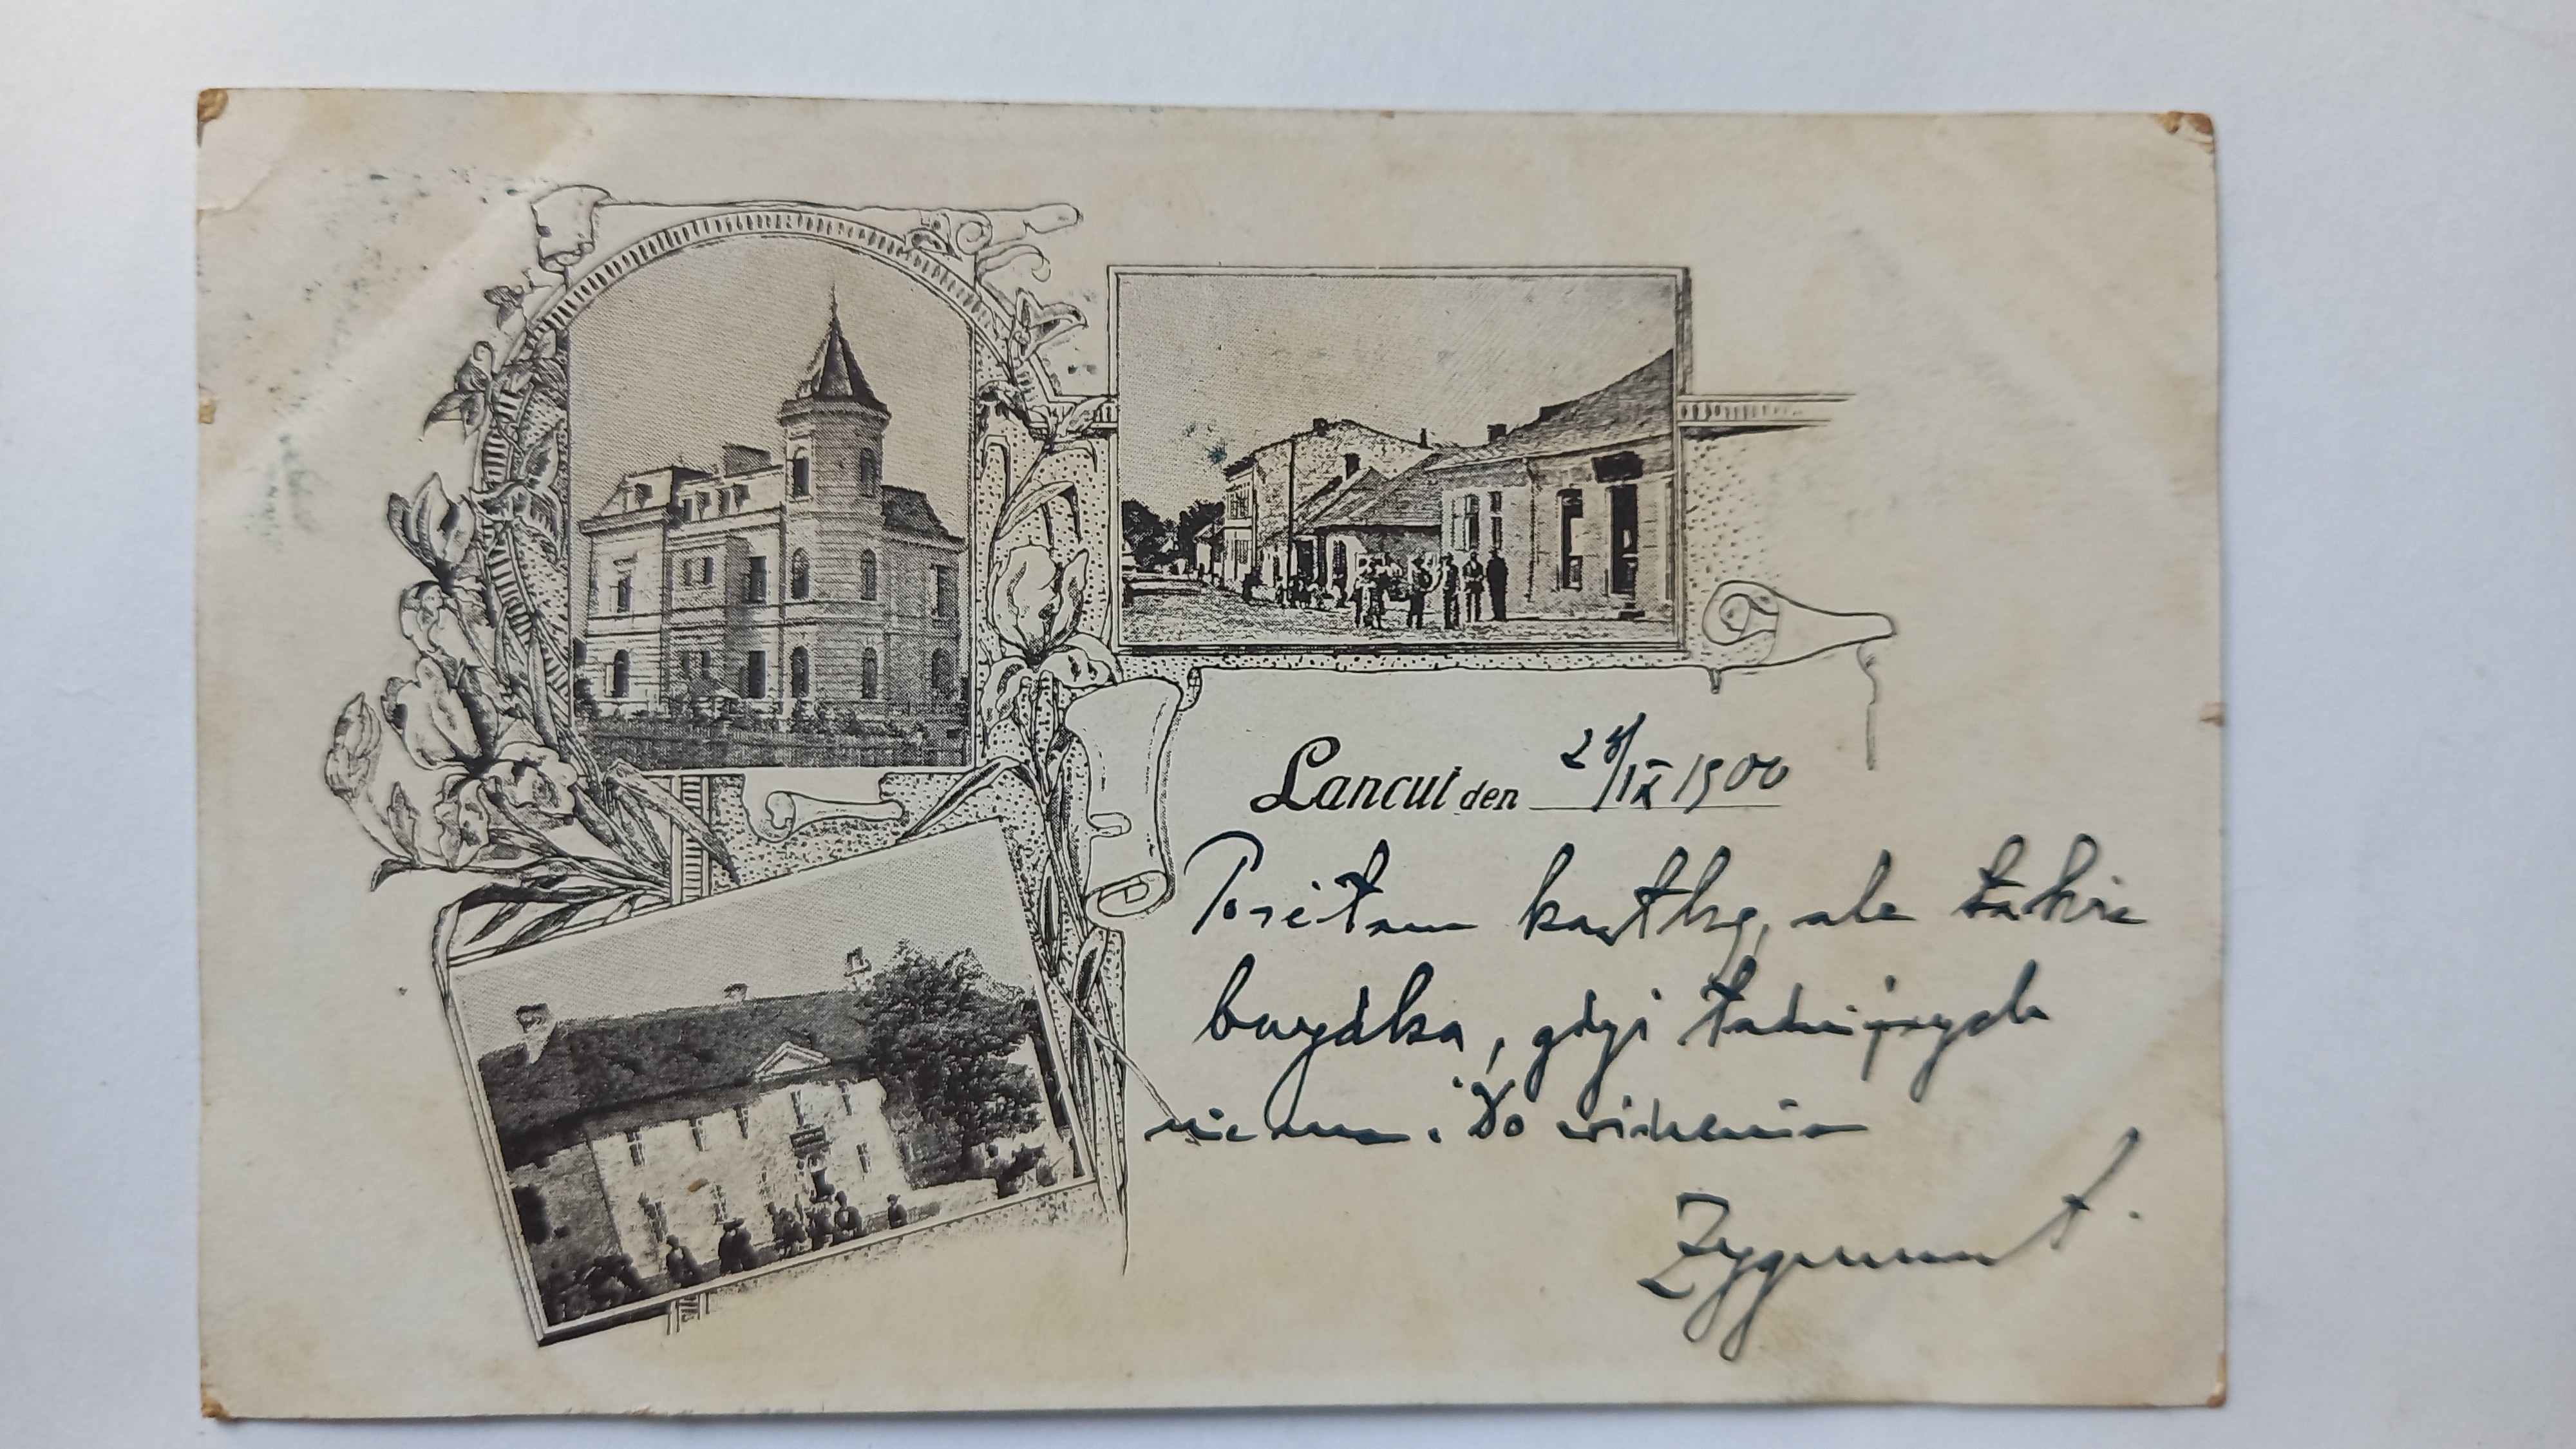 Lancut den 28/IX 1900
Posełam kartkę, ale także
brzydka, gdyż ładniejszych
nie ma. Do widzenia
Zygmunt.